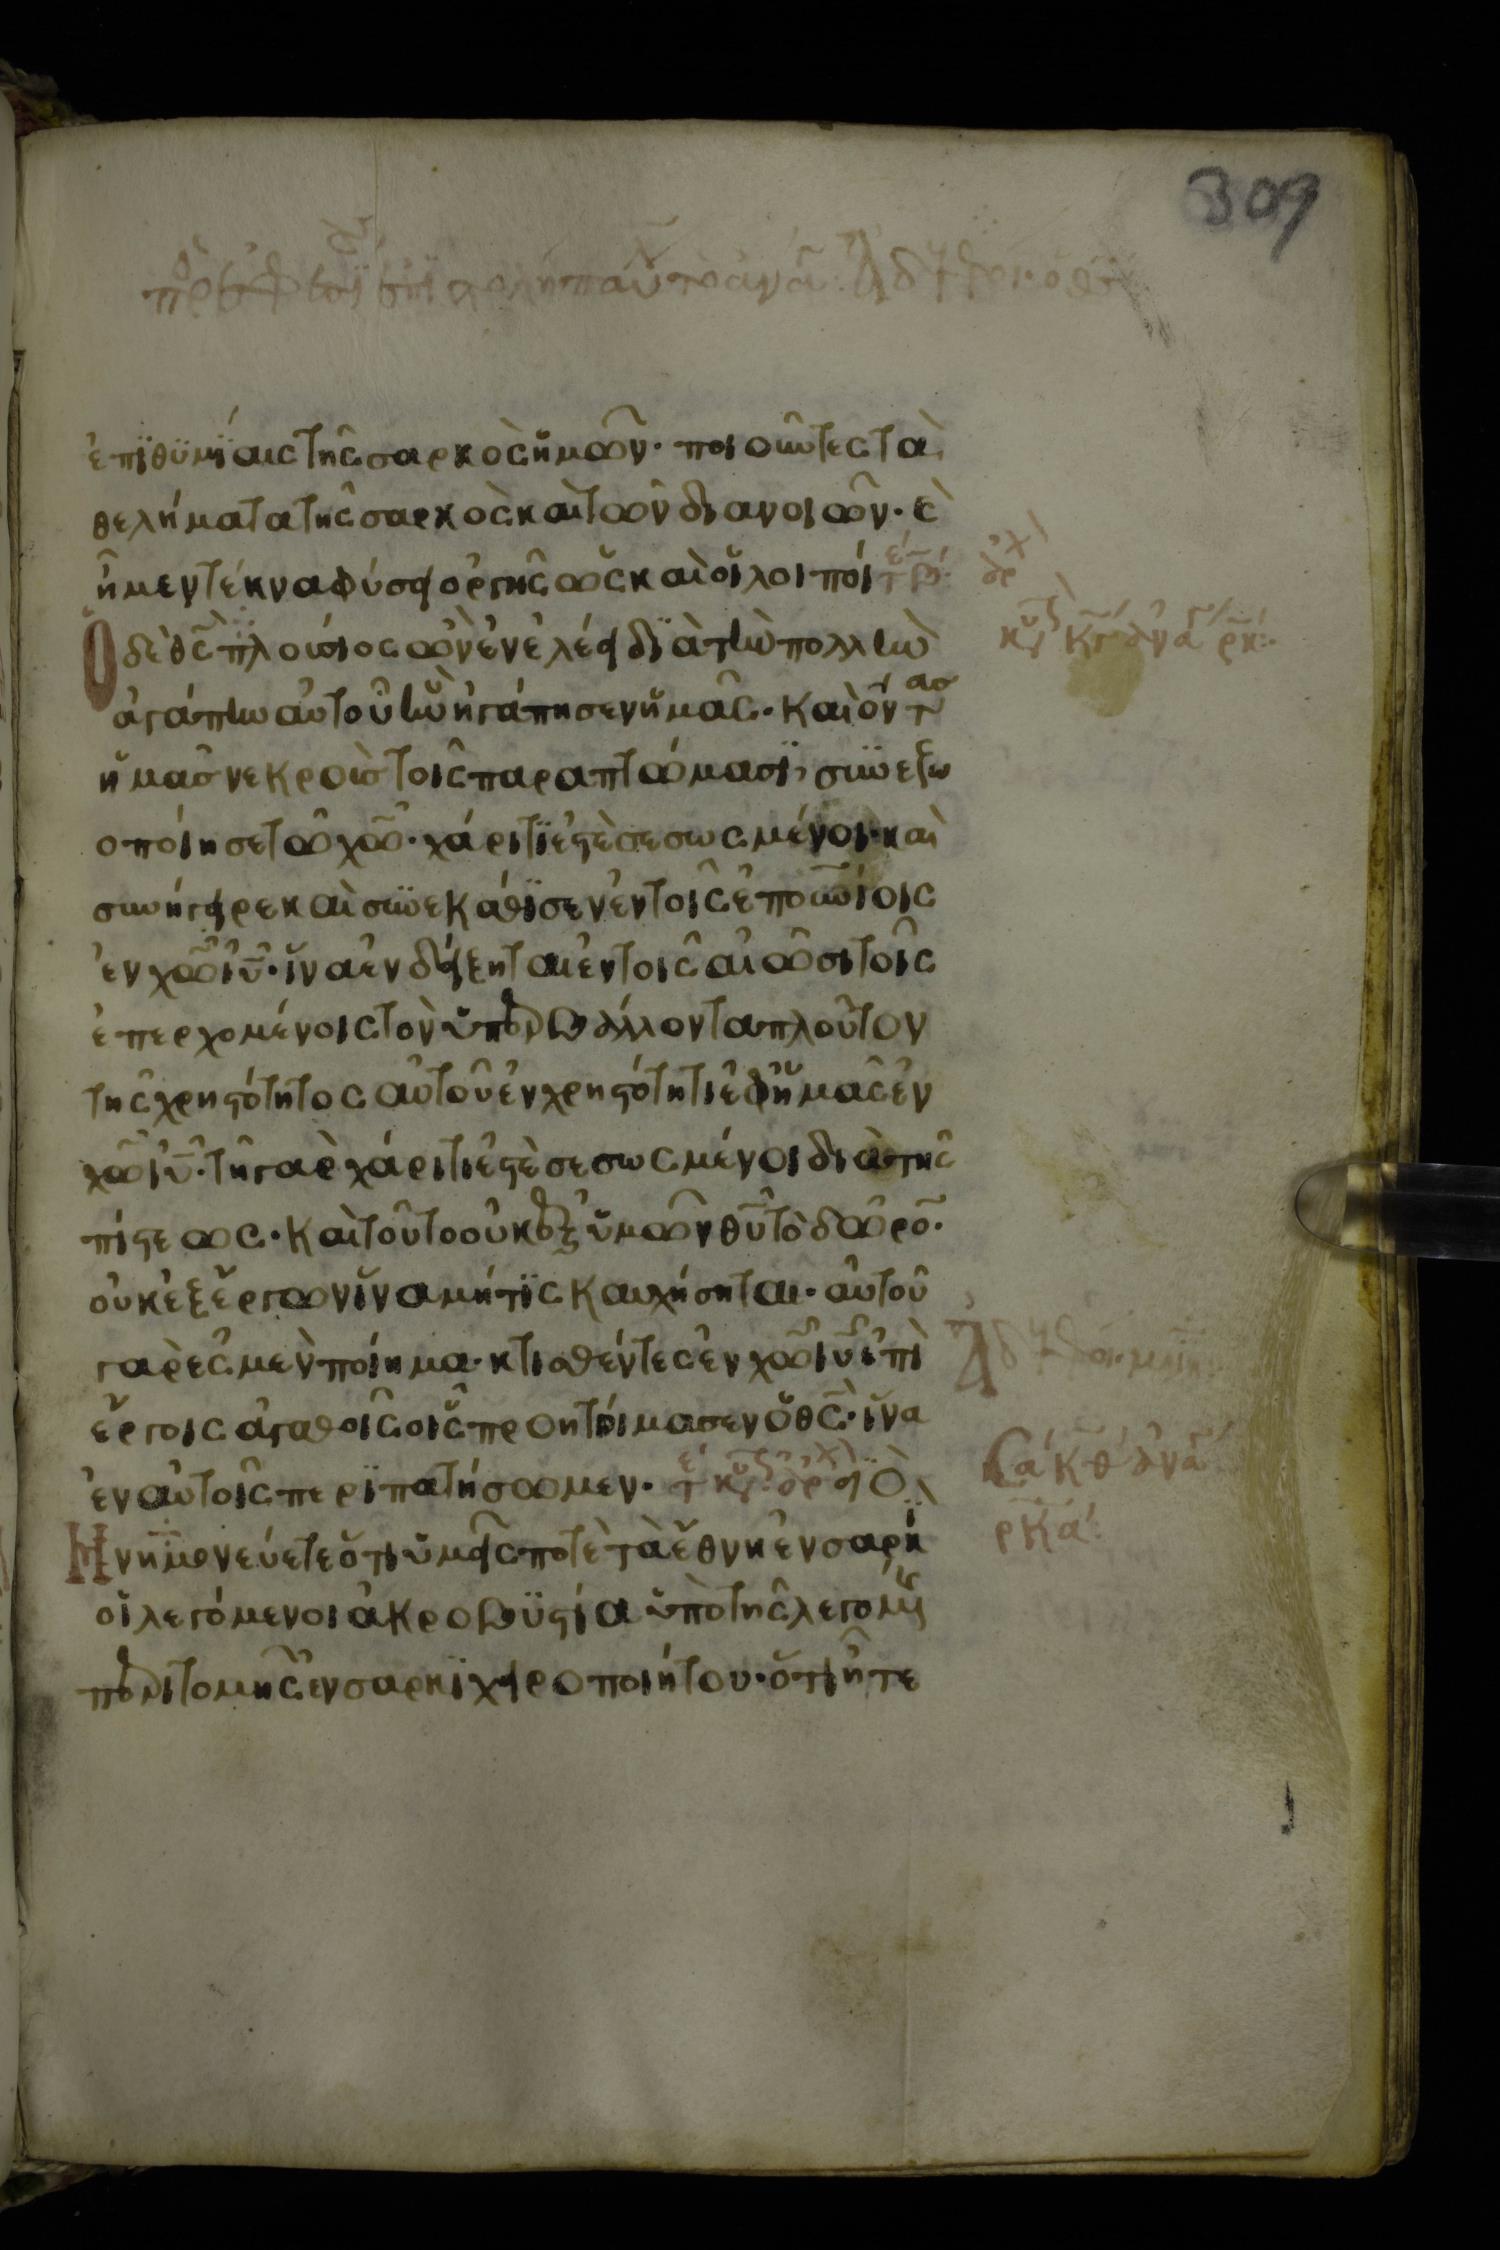 309
ἐπϊθϋμΐαις τῆς σαρκὸς ἡμῶν· ποιοῦντες τὰ
θελήματα τῆς σαρκὸς καὶ τῶν διανοιῶν· καὶ
ἦμεν τέκνα φύσει ὀργῆς ὡς καὶ οἱ λοιποί
Ὁ δὲ θς̅ πλούσιος ὢν ἐν ἐλέει δϊὰ τὴν πολλὴν
ἀγάπην αὐτοῦ ἣν ἠγάπησεν ἡμᾶς· καὶ ὄντας
ἡμᾶς νεκροὺς τοῖς παραπτώμασϊ, συνεζω
οποίησε τῶ χῶ̅· χάριτϊ ἐστὲ σεσωσμένοι· καὶ
συνήγειρε καὶ συνεκάθϊσεν ἐν τοῖς ἐπουνίοις
ἐν χῶ̅ ἰῦ̅· ἵνα ἐνδείξηται ἐν τοῖς αἰῶσι τοῖς
ἐπερχομένοις τὸν ὑπερβάλλοντα πλοῦτον
τῆς χρηστότητος αὐτοῦ ἐν χρηστότητι ἐφ' ἡμᾶς ἐν
χῶ̅ ἰῦ̅· τῆ γὰρ χάριτι ἐστὲ σεσωσμένοι διὰ τῆς
πίστεως· καὶ τοῦτο οὐκ ἐξ ὑμῶν θῦ̅ τὸ δῶρον·
οὐκ ἐξ ἔργων ἵνα μή τϊς καυχήσηται· αὐτοῦ
γὰρ ἐσμὲν ποίημα· κτισθέντες ἐν χῶ̅ ἰῦ̅ ἐπὶ
ἔργοις ἀγαθοῖς οἷς προητοίμασεν ὁ θς̅· ἵνα
ἐν αὐτοῖς περϊπατήσωμεν·
Μνημονεύετε ὅτι ὑμεῖς ποτὲ τὰ ἔθνη ἐν σαρκὶ
οἱ λεγόμενοι ἀκροβϋστία ὑπὸ τῆς λεγομένης
περιτομῆς ἐν σαρκϊ χειροποιήτου· ὅτι ἦτε